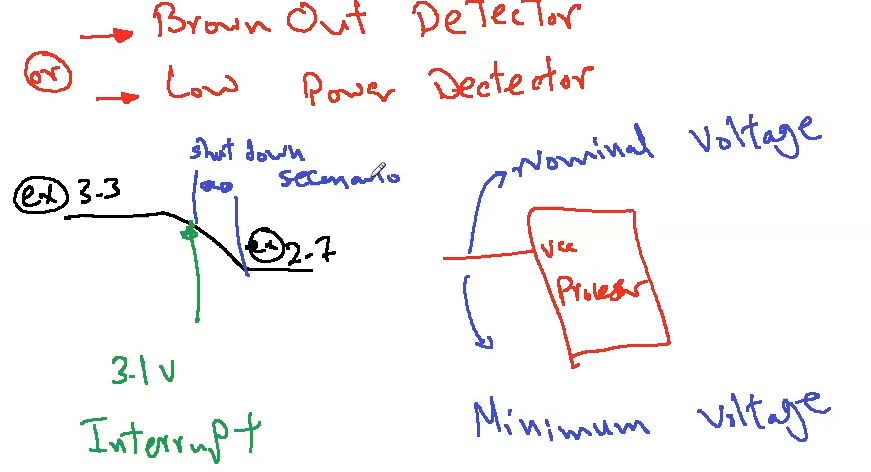 → Brown Out Detector
or
→ Low Power Dectector
shut down
secenario
ex 3.3
ex 2.7
3.1 V
Interrupt
Nominal Voltage
Vcc
Minimum Voltage